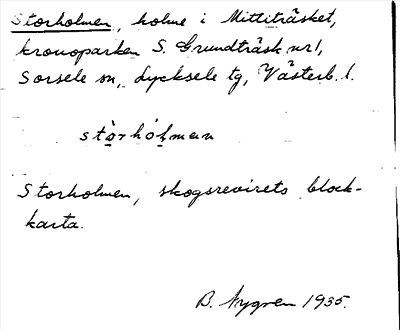 Storholmen, holme i Mittiträsket,
kronoparken S. Grundträsk nr 1,
Sorsele sn, Lycksele tg, Västerb. l.
stọrhóḷman
Storholmen, skogsrevirets block-
karta.
B. Nygren 1935.